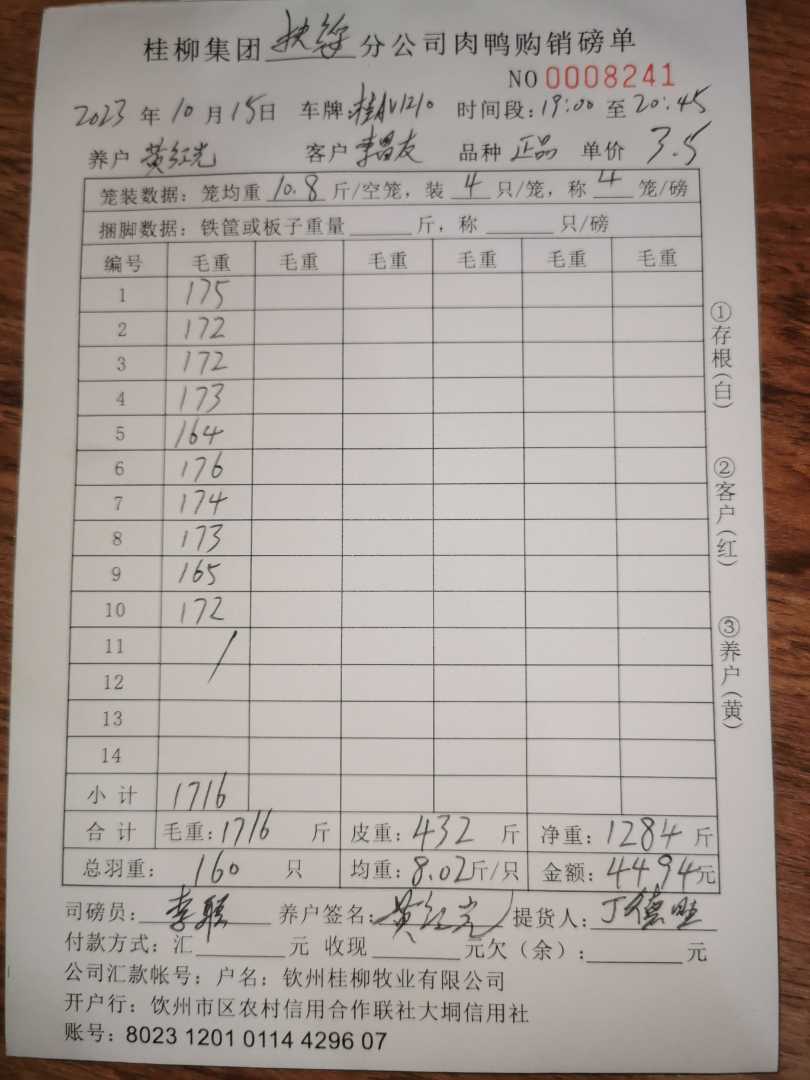 桂柳集团扶绥分公司肉鸭购销磅单
NO 0008241
2023年10月15日 车牌:桂AV1210 时间段:19:00至20:45
养户 黄红光 客户 李昌友 品种 正品 单价 3.5
笼装数据:笼均重 10.8 斤/空笼,装 4 只/笼,称 4 笼/磅
捆脚数据:铁筐或板子重量______斤,称______只/磅
编号 毛重 毛重 毛重 毛重 毛重 毛重
1 175
2 172
3 172
4 173
5 164
6 176
7 174
8 173
9 165
10 172
11 /
12
13
14
小计 1716
合计 毛重:1716斤 皮重:432斤 净重:1284斤
总羽重: 160 只 均重:8.02斤/只 金额:4494元
司磅员: 李 养户签名:黄红光 提货人:丁德旺
付款方式:汇______元 收现______元欠(余):______元
公司汇款帐号:户名:钦州桂柳牧业有限公司
开户行:饮州市区农村信用合作联社大垌信用社
账号:8023 1201 0114 4296 07
①存根(白)
②客户(红)
③养户(黄)